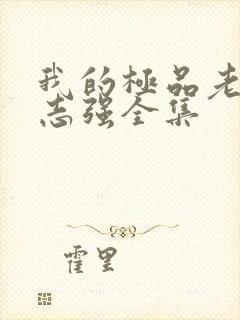 我的極品老
志强全集
霍里